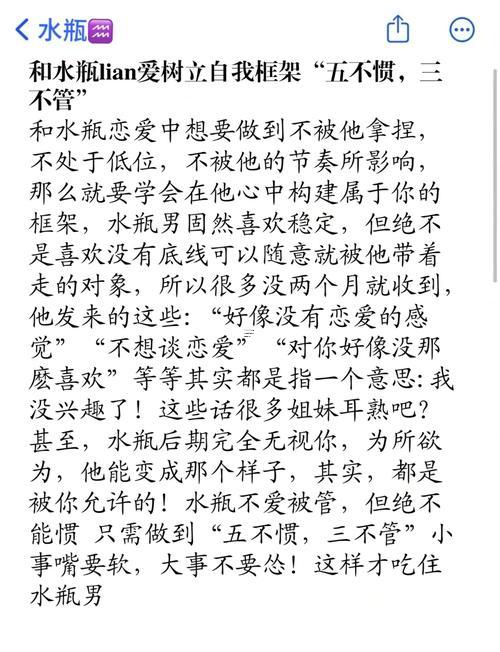 水瓶♒
和水瓶lian爱树立自我框架“五不惯，三
不管”
和水瓶恋爱中想要做到不被他拿捏，
不处于低位，不被他的节奏所影响，
那么就要学会在他心中构建属于你的
框架，水瓶男固然喜欢稳定，但绝不
是喜欢没有底线可以随意就被他带着
走的对象，所以很多没两个月就收到，
他发来的这些：“好像没有恋爱的感
觉”“不想谈恋爱”“对你好像没那
麽喜欢”等等其实都是指一个意思：我
没兴趣了！这些话很多姐妹耳熟吧？
甚至，水瓶后期完全无视你，为所欲
为，他能变成那个样子，其实，都是
被你允许的！水瓶不爱被管，但绝不
能惯 只需做到“五不惯，三不管”小
事嘴要软，大事不要怂！这样才吃住
水瓶男